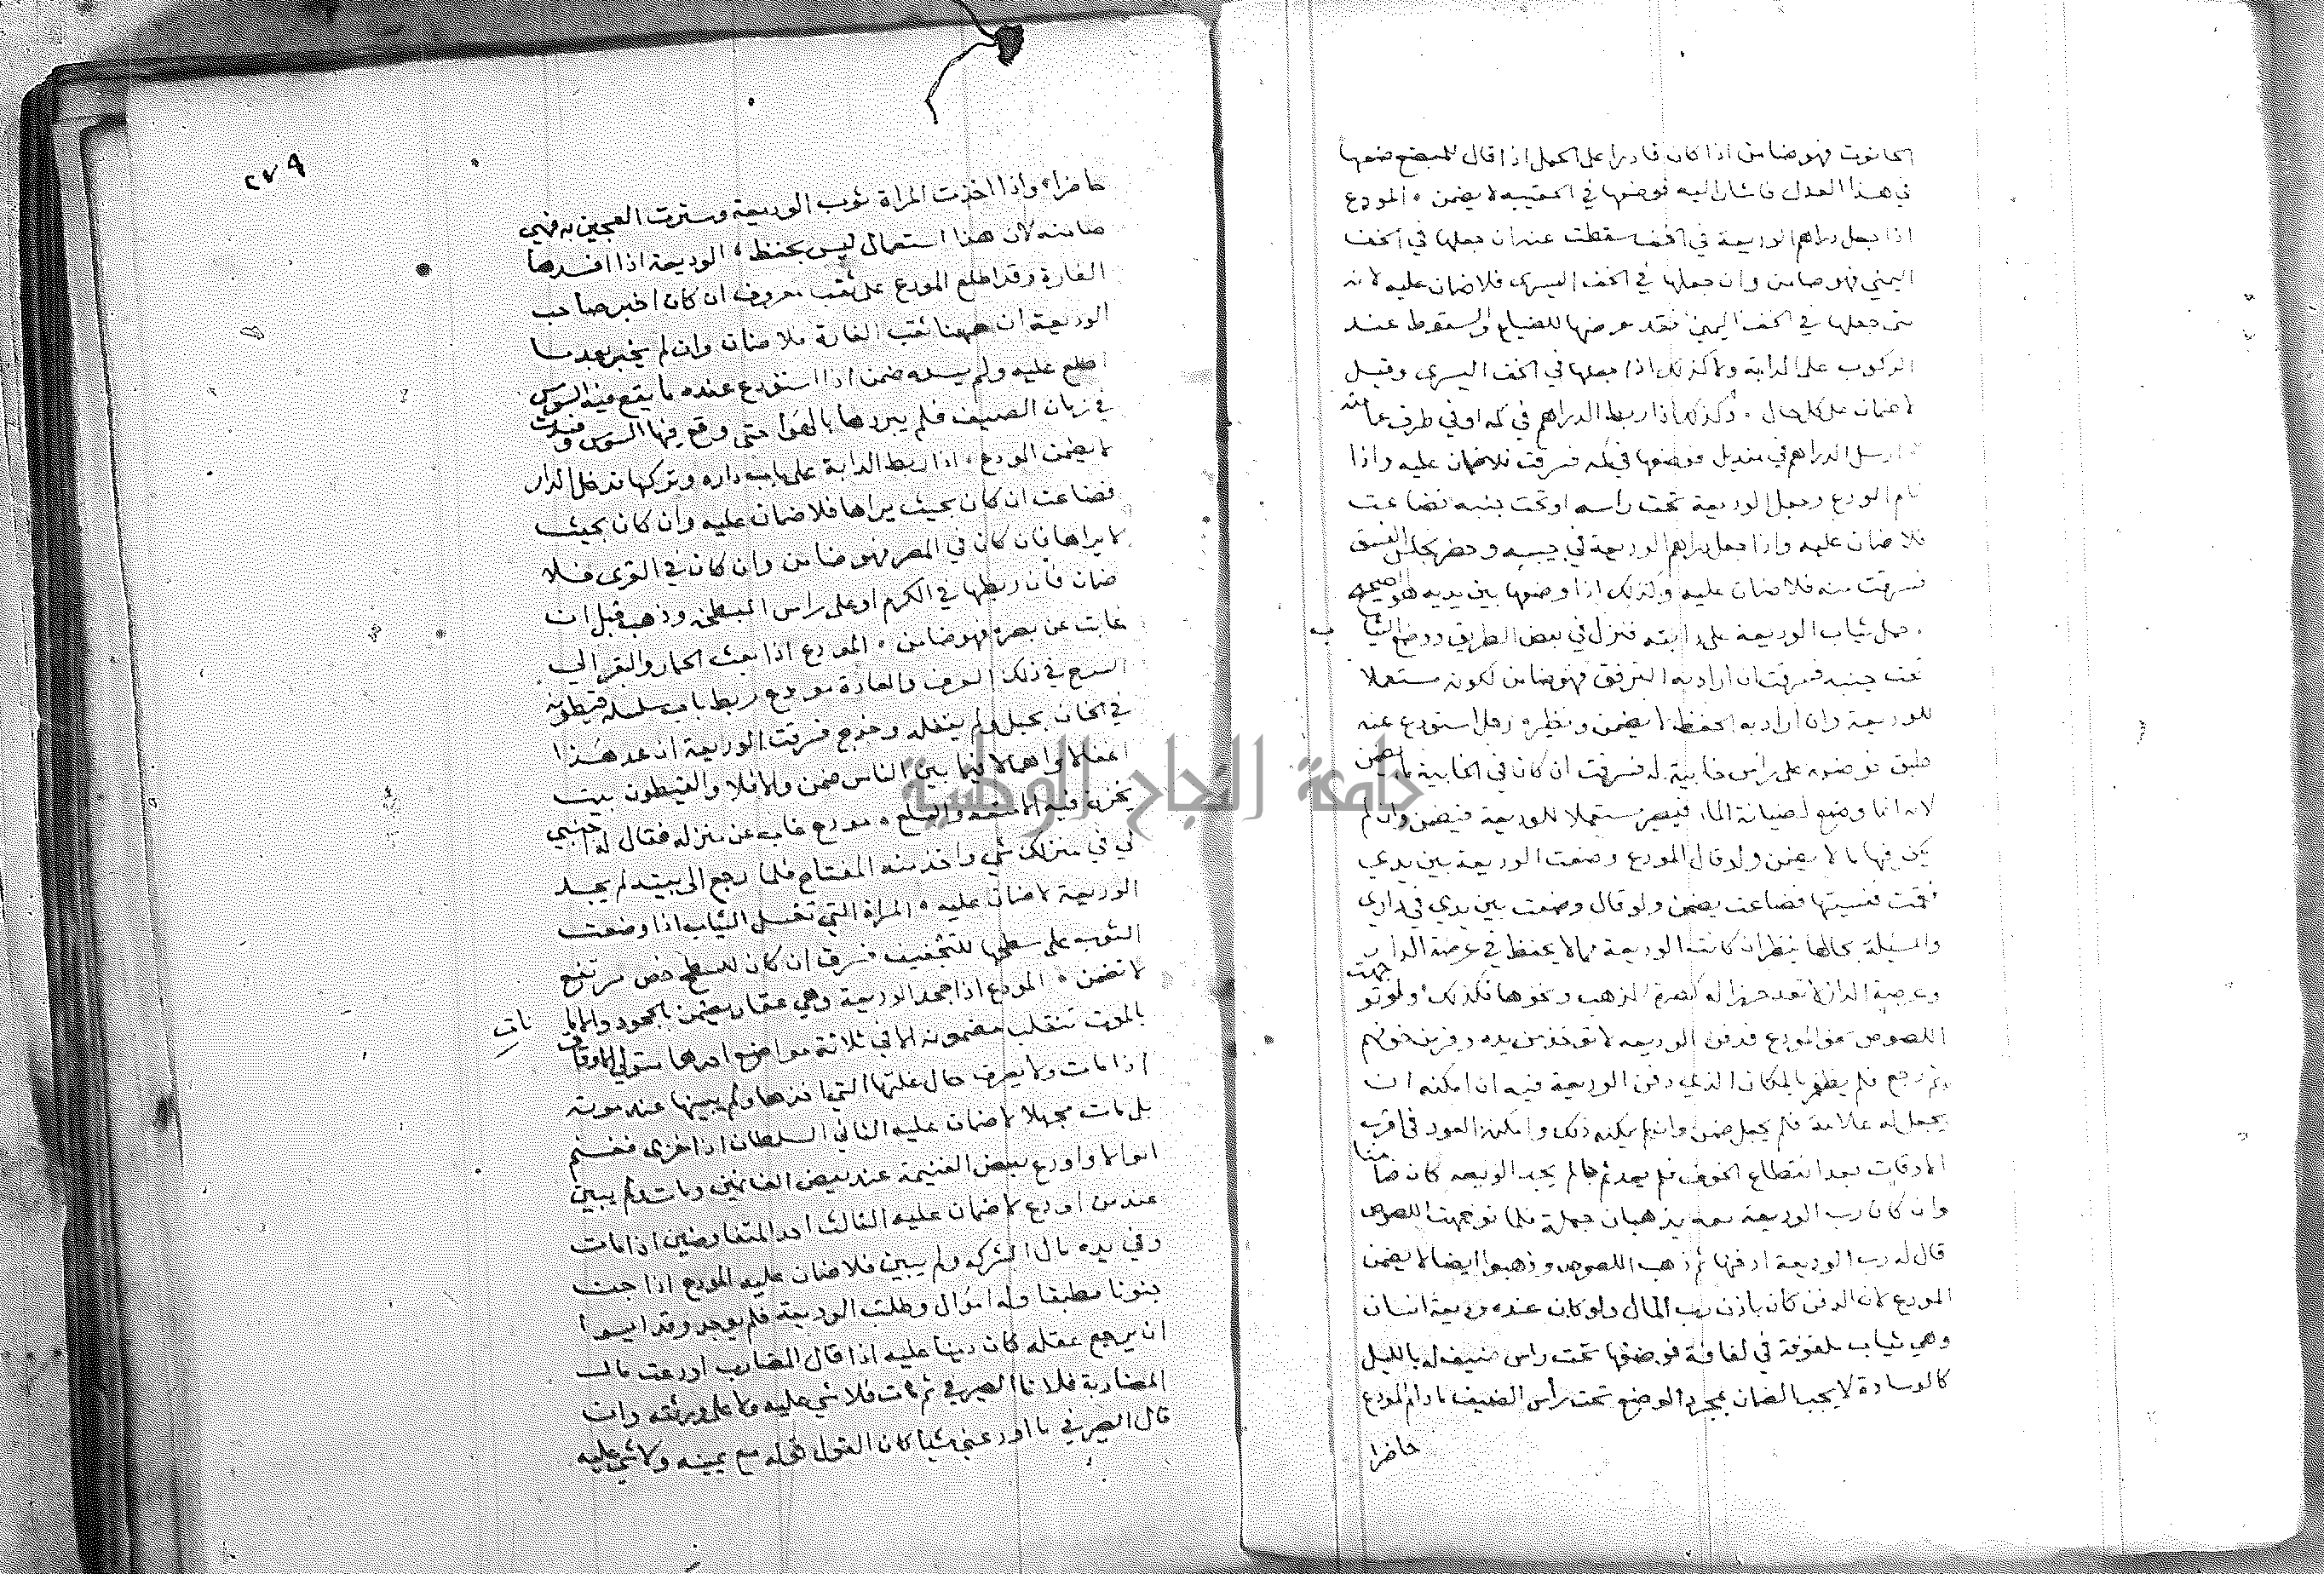 الحانوت فهو ضامن اذا كان قادرا على الحمل اذا قال للمبضع ضعها
في هذا العدل فاشار اليه فوضعها في الحقيبه لا يضمن ٥ المودع
اذا جعل دراهم الوديعة في الخف سقطت عنه ان جعلها في الخف
اليمني فهو ضامن وان جعلها في الخف اليسرى فلا ضمان عليه لانه
متى جعلها في الخف اليمين فقد عرضها للضياع والسقوط عند
الركوب على الدابة ولا كذلك اذا جعلها في الخف اليسرى وقيل
لا ضمان على كل حال ٠ وكذلك اذا ربط الدراهم في كمه او في طرف عمامته
ارسل الدراهم في منديل فوضعها في كمه فسرقت فلا ضمان عليه واذا
نام المودع وجعل الوديعة تحت راسه او تحت جنبه فضاعت
فلا ضمان عليه واذا جعل دراهم الوديعة في جيبه وحضر مجلس الفسق
فسرقت منه فلا ضمان عليه وكذلك اذا وضعها بين يديه هو الصحيح
حمل ثياب الوديعة على دابته فنزل في بعض الطريق ووضع الثياب
تحت جنبه فسرقت ان اراد به الترفق فهو ضامن لكونه مستعملا
للوديعة وان اراد به الحفظ لا يضمن ونظيره رجل استودع عنه
طبق فوضعه على راس خابية له فسرقت ان كان في الخابية ماء يضمن
لانه انما وضع لصيانة الماء فيصير مستعملا للوديعة فيضمن وان لم
يكن فيها ماء لا يضمن ولو قال المودع وضعت الوديعة بين يدي
فقمت فنسيتها فضاعت يضمن ولو قال وضعت بين يدي في داري
والمسئلة بحالها ينظر ان كانت الوديعة مما لا يحفظ في عرصة الدار
وعرصة الدار لا تعد حرزا له كصرة الذهب ونحوها فكذلك ولو توجهت
اللصوص نحو المودع فدفن الوديعه لا توخذ من يده وفر من خوفهم
ثم رجع فلم يظفر بالمكان الذي دفن الوديعة فيه ان امكنه ان
يجعل له علامة فلم يجعل ضمن وان لم يمكنه ذلك وامكنه العود في اقرب
الاوقات بعد انقطاع الخوف فلم يعد ثم جا لم يجد الوديعه كان ضامنا
وان كان رب الوديعة معه يذهبان جملة فلما توجهت اللصوص
قال له رب الوديعة ادفنها ثم ذهب اللصوص وذهبوا ايضا لا يضمن
المودع لان الدفن كان باذن رب المال ولو كان عنده وديعة انسان
وهي ثياب ملفوفة في لفافة فوضعها تحت راس ضيف له بالليل
كالوسادة لا يجب الضمان بمجرد الوضع تحت راس الضيف ما دام المودع
حاضرا
٢٧٩
حاضرا ٥ واذا اخذت المراة ثوب الوديعة وسترت العجين به فهي
ضامنه لان هذا استعمال ليس بحفظ ٥ الوديعة اذا افسدها
الفارة وقد اطلع المودع على ثقب معروف ان كان اخبر صاحب
الوديعة ان ههنا ثقب الفارة فلا ضمان وان لم يخبر بعد ما
اطلع عليه ولم يسده ضمن اذا استودع عنده ما يقع فيه السوس
في زمان الصيف فلم يبردها بالهوا حتى وقع فيها السوس وفسدت
لا يضمن المودع ٥ اذا ربط الدابة على باب داره وتركها ودخل الدار
فضاعت ان كان بحيث يراها فلا ضمان عليه وان كان بحيث
لا يراها فان كان في المصر فهو ضامن وان كان في القرى فلا
ضمان فان ربطها في الكرم او على راس المبطخه وذهب قيل ان
غابت عن بصره فهو ضامن ٥ المودع اذا بعث الحمار والبقر الي
السرح في ذلك العرف والعادة مودع ربط باب سلسله قيطونه
في الخان بحبل ولم يقفله وخرج فسرقت الوديعة ان عد هذا
اغفالا واهمالا فيما بين الناس ضمن والا فلا والقيطون بيت
يخزن فيه الامتعه والسلع ٥ مودع غاب عن منزله فقال له اجنبي
لي في منزلك شي واخذ منه المفتاح فلما رجع الى بيته لم يجد
الوديعة لا ضمان عليه ٥ المراة التي تغسل الثياب اذا وضعت
الثوب على سطحها للتجفيف فسرق ان كان للسطح خص مرتفع
لا تضمن ٥ المودع اذا جحد الوديعة وهي عقار يضمن بالجحود والامانات
بالموت تنقلب مضمونه الا في ثلاثة مواضع احدها متولي الاوقاف
اذا مات ولا يعرف حال غلتها التي اخذها ولم يبينها عند موته
بل مات مجهلا لا ضمان عليه الثاني السلطان اذا غزى فغنم
اموالا واودع بعض الغنيمة عند بعض الغانمين ومات ولم يبين
عند من اودع لا ضمان عليه الثالث احد المتفاوضين اذا مات
وفي يده مال الشركه ولم يبين فلا ضمان عليه المودع اذا جن
جنونا مطبقا وله اموال وطلبت الوديعة فلم يوجد وقد ايسوا
ان يرجع عقله كان دينا عليه اذا قال المضارب اودعت مال
المضاربة فلانا الصيرفي ثم مات فلا شي عليه ولا على ورثته وان
قال الصيرفي ما اودعني شيا كان القول قوله مع يمينه ولا شي عليه
جامعة النجاح الوطنية